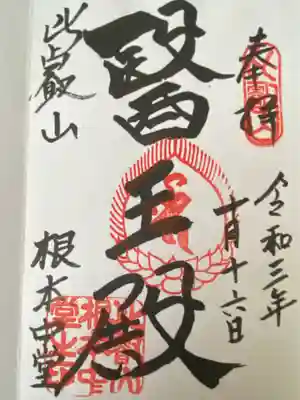 奉拝
令和三年
十月十六日
醫王殿
比叡山
根本中堂